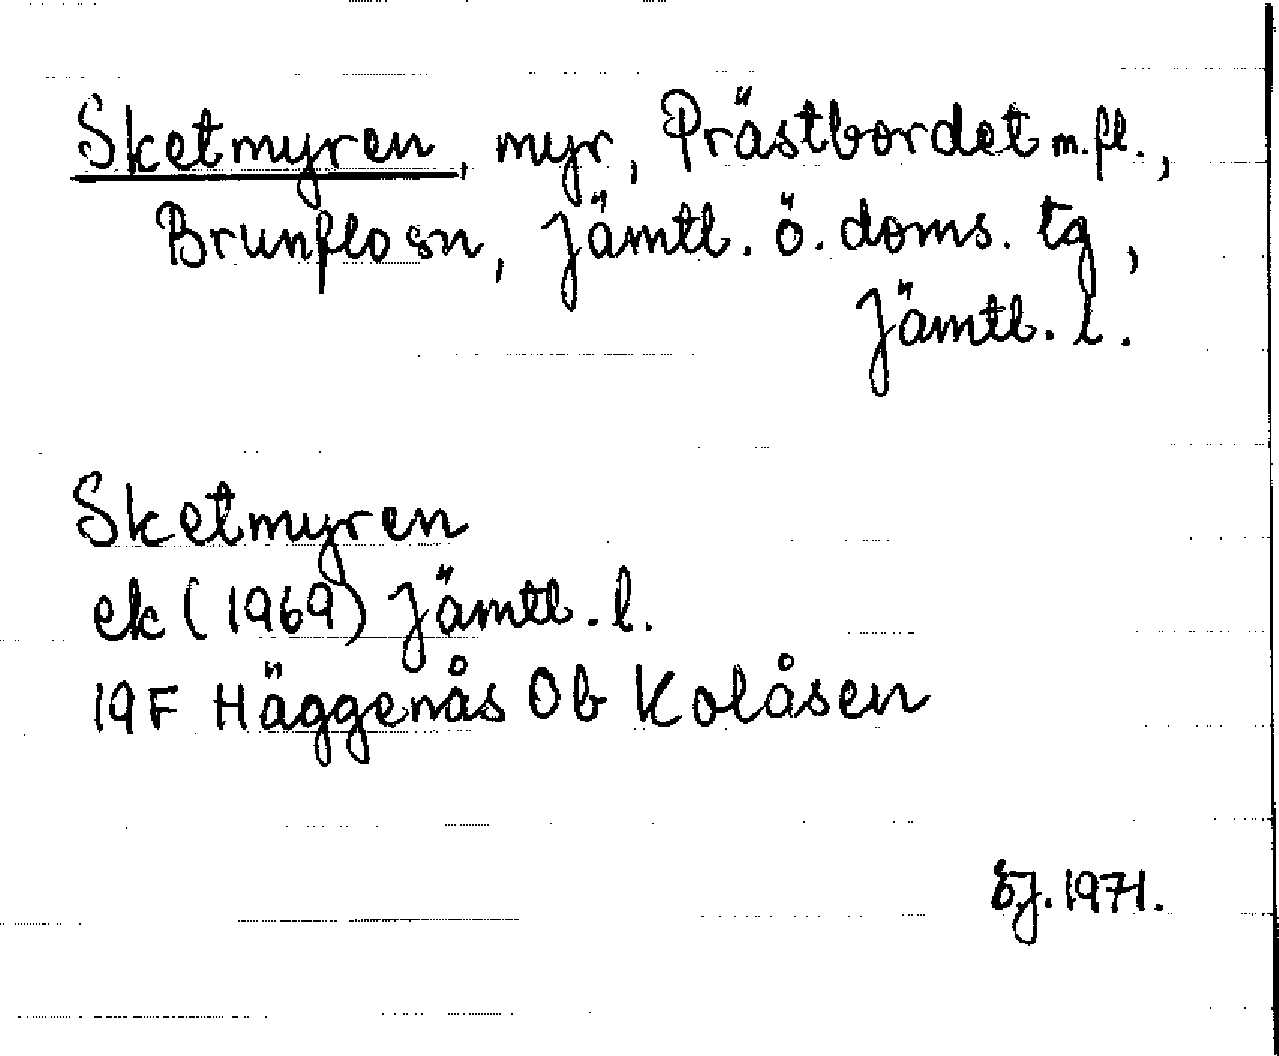 Sketmyren, myr, Prästbordet m.fl.,
Brunflo sn, Jämtl. ö. doms. tg,
Jämtl. l.
Sketmyren
ek (1969) Jämtl. l.
19F Häggenås Ob Kolåsen
1971.